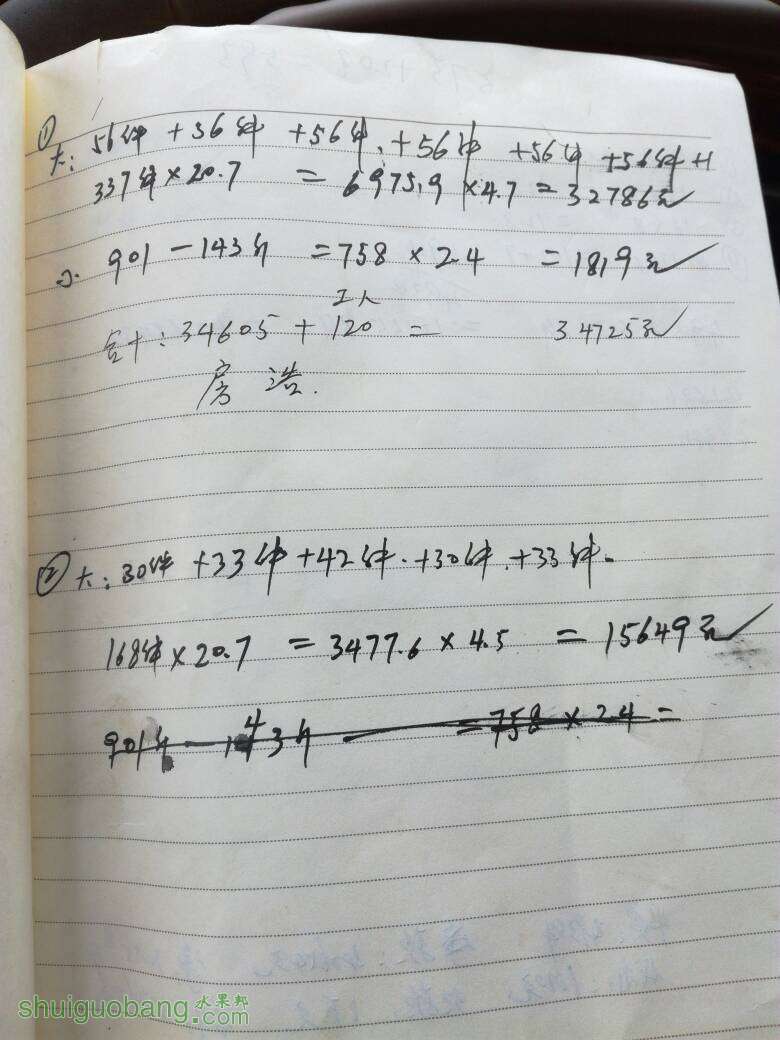 ①
大: 56件 + 56件 + 56件. + 56件 + 56件 + 56件 + 1
337件 × 20.7 = 6975.9 × 4.7 = 32786元
小. 901 - 143斤 = 758 × 2.4 = 1819元
工人
合计: 34605 + 120 = 34725元
房 浩.
② 大: 30件 + 33件 + 42件. + 30件. + 33件.
168件 × 20.7 = 3477.6 × 4.5 = 15649元
901斤 - 143斤 = 758 × 2.4 =
水果邦
shuiguobang.com